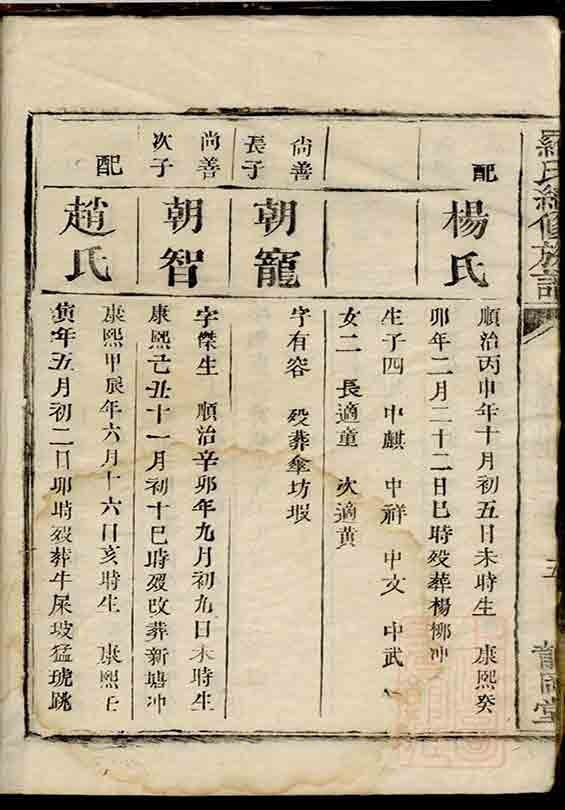 羅氏續修族譜
配
楊氏
順治丙申年十月初五日未時生 康熙癸
卯年二月二十二日巳時歿葬楊柳冲
生子四 中麒 中祥 中文 中武
女二 長適童 次適黃
尚善
長子
朝寵
字有容 歿葬傘坊塅
尚善
次子
朝智
字傑生 順治辛卯年九月初九日未時生
康熙己丑十一月初十巳時歿改葬新塘冲
配
趙氏
康熙甲辰年六月十六日亥時生 康熙壬
寅年五月初二日卯時歿葬牛屎坡猛琥跳
五